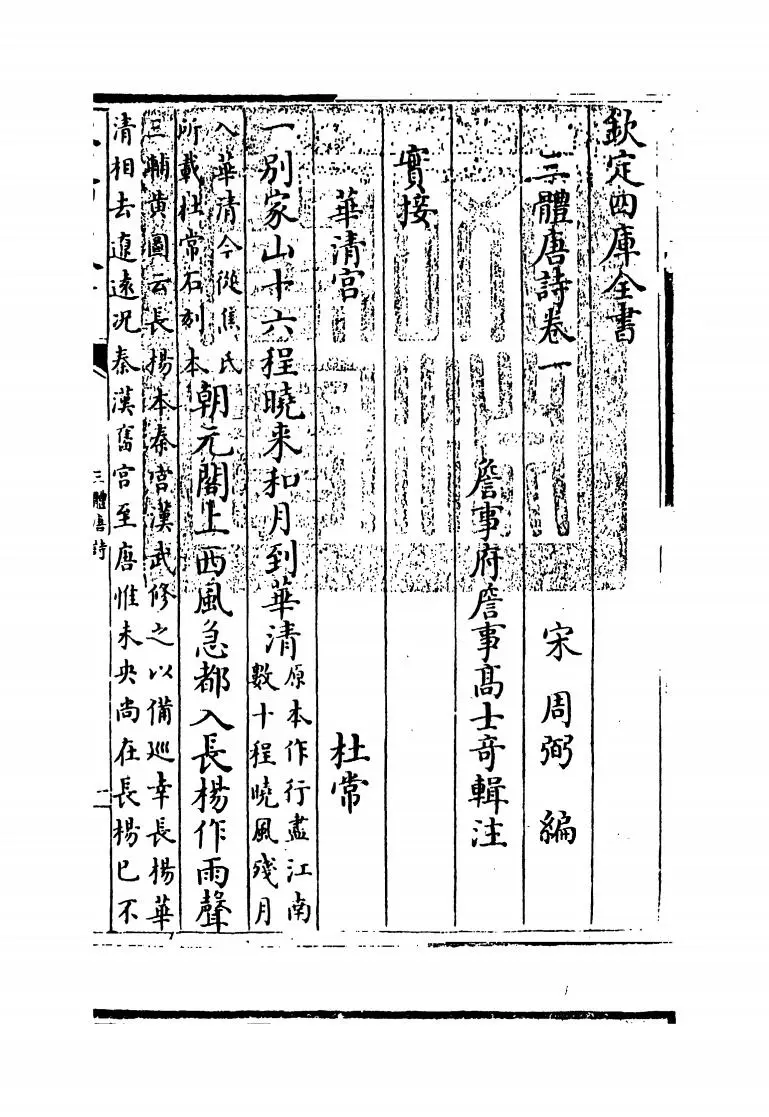 欽定四庫全書
三體唐詩卷一
宋 周弼 編
詹事府詹事高士竒輯注
實接
華清宮
杜常
一別家山十六程曉来和月到華清
原本作行盡江南
數十程曉風殘月
入華清今從焦氏
所載杜常石刻本
朝元閣上西風急都入長楊作雨聲
三輔黄圖云長楊本秦宫漢武修之以備巡幸長楊華
清相去遼遠况秦漢舊宫至唐惟未央尚在長楊已不
三體唐詩
一